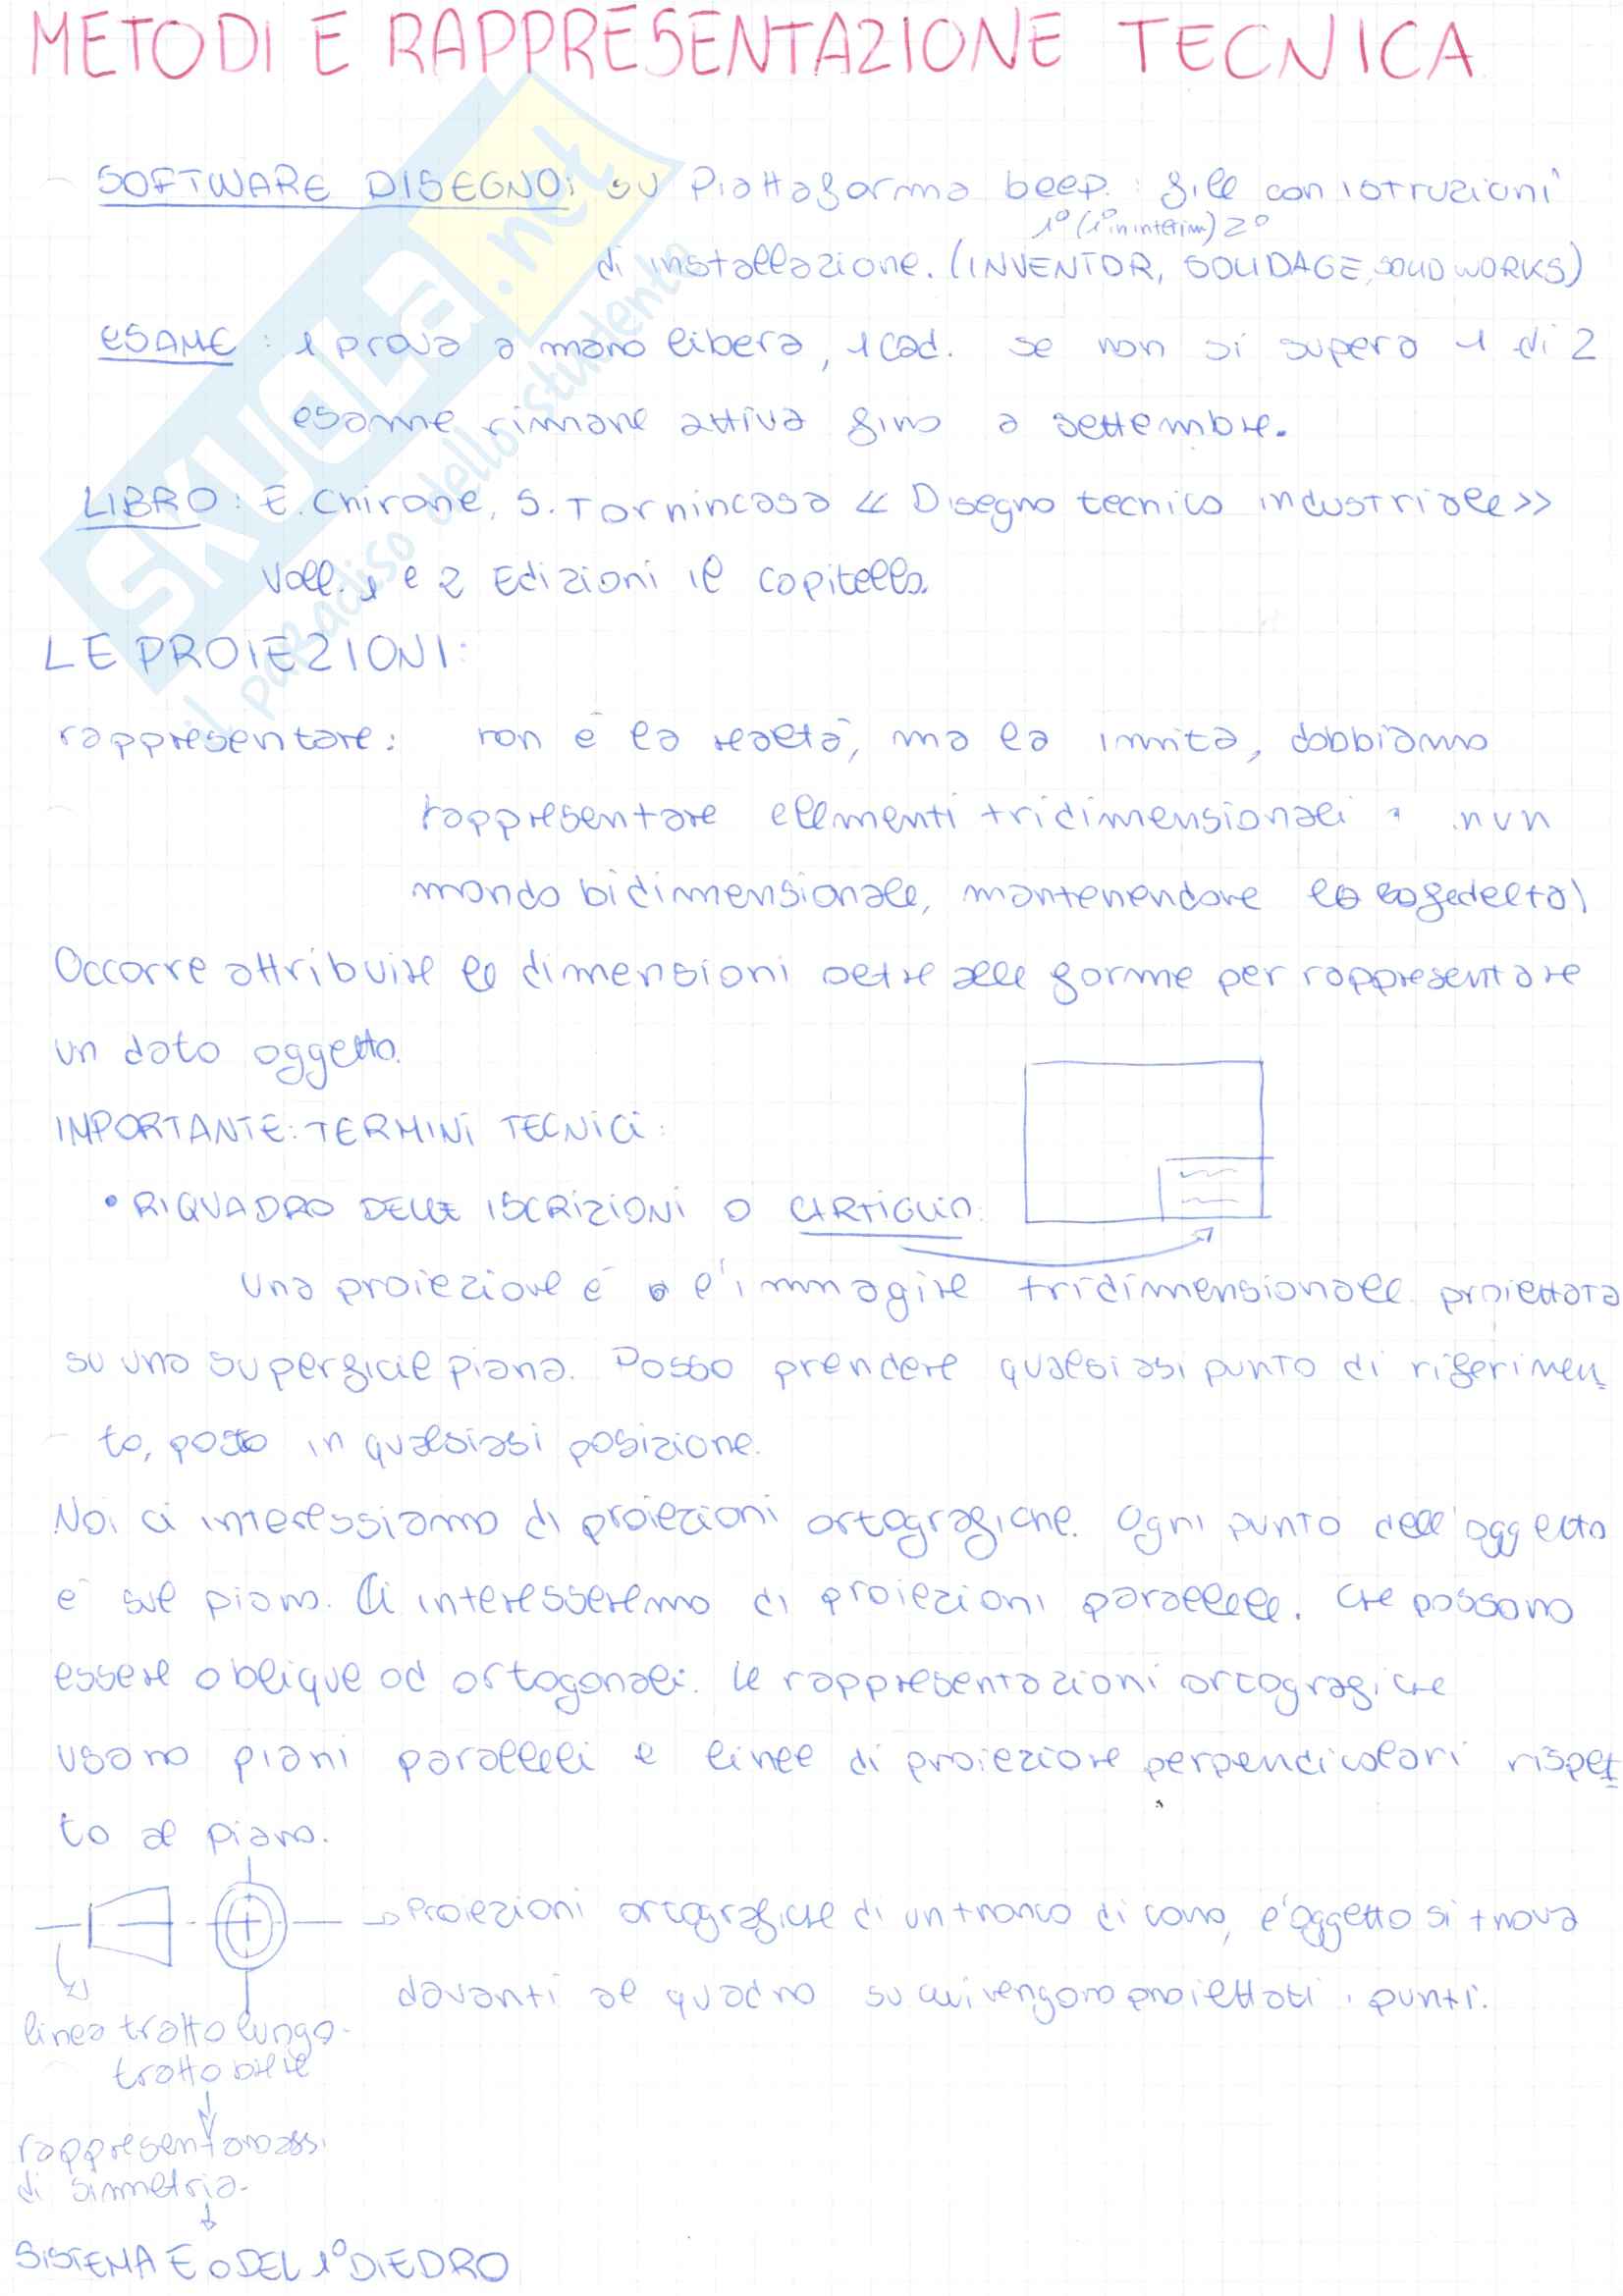 METODI E RAPPRESENTAZIONE TECNICA
SOFTWARE DISEGNO: su Piattaforma beep: file con istruzioni
1° (1° in interim) 2°
di installazione. (INVENTOR, SOLIDAGE, SOLID WORKS)
ESAME: 1 prova a mano libera, 1 cad. se non si supera 1 di 2
esame rimane attiva fino a settembre.
LIBRO: E. Chirone, S. Tornincasa << Disegno tecnico industriale >>
Voll. 1 e 2 Edizioni il capitello.
LE PROIEZIONI:
rappresentare: non è la realtà, ma la imita, dobbiamo
rappresentare ellementi tridimensionali in un
mondo bidimensionale, mantenendone la fedeltà!
Occorre attribuire le dimensioni oltre alle forme per rappresentare
un dato oggetto.
IMPORTANTE: TERMINI TECNICI:
• RIQUADRO DELLE ISCRIZIONI O CARTIGLIO:
Una proiezione è l'immagine tridimensionale proiettata
su una superficie piana. Posso prendere qualsiasi punto di riferimen
to, posto in qualsiasi posizione.
Noi ci interessiamo di proiezioni ortografiche. Ogni punto dell'oggetto
è sul piano. Ci interesseremo di proiezioni parallele. Che possono
essere oblique od ortogonali. Le rappresentazioni ortografiche
usano piani paralleli e linee di proiezione perpendicolari rispet
to al piano.
Proiezioni ortografiche di un tronco di cono, l'oggetto si trova
davanti al quadro su cui vengono proiettati i punti.
linea tratto lungo-
tratto breve
rappresentano assi
di simmetria.
SISTEMA E O DEL 1° DIEDRO
SKUOLA.net
il paradiso dello studente